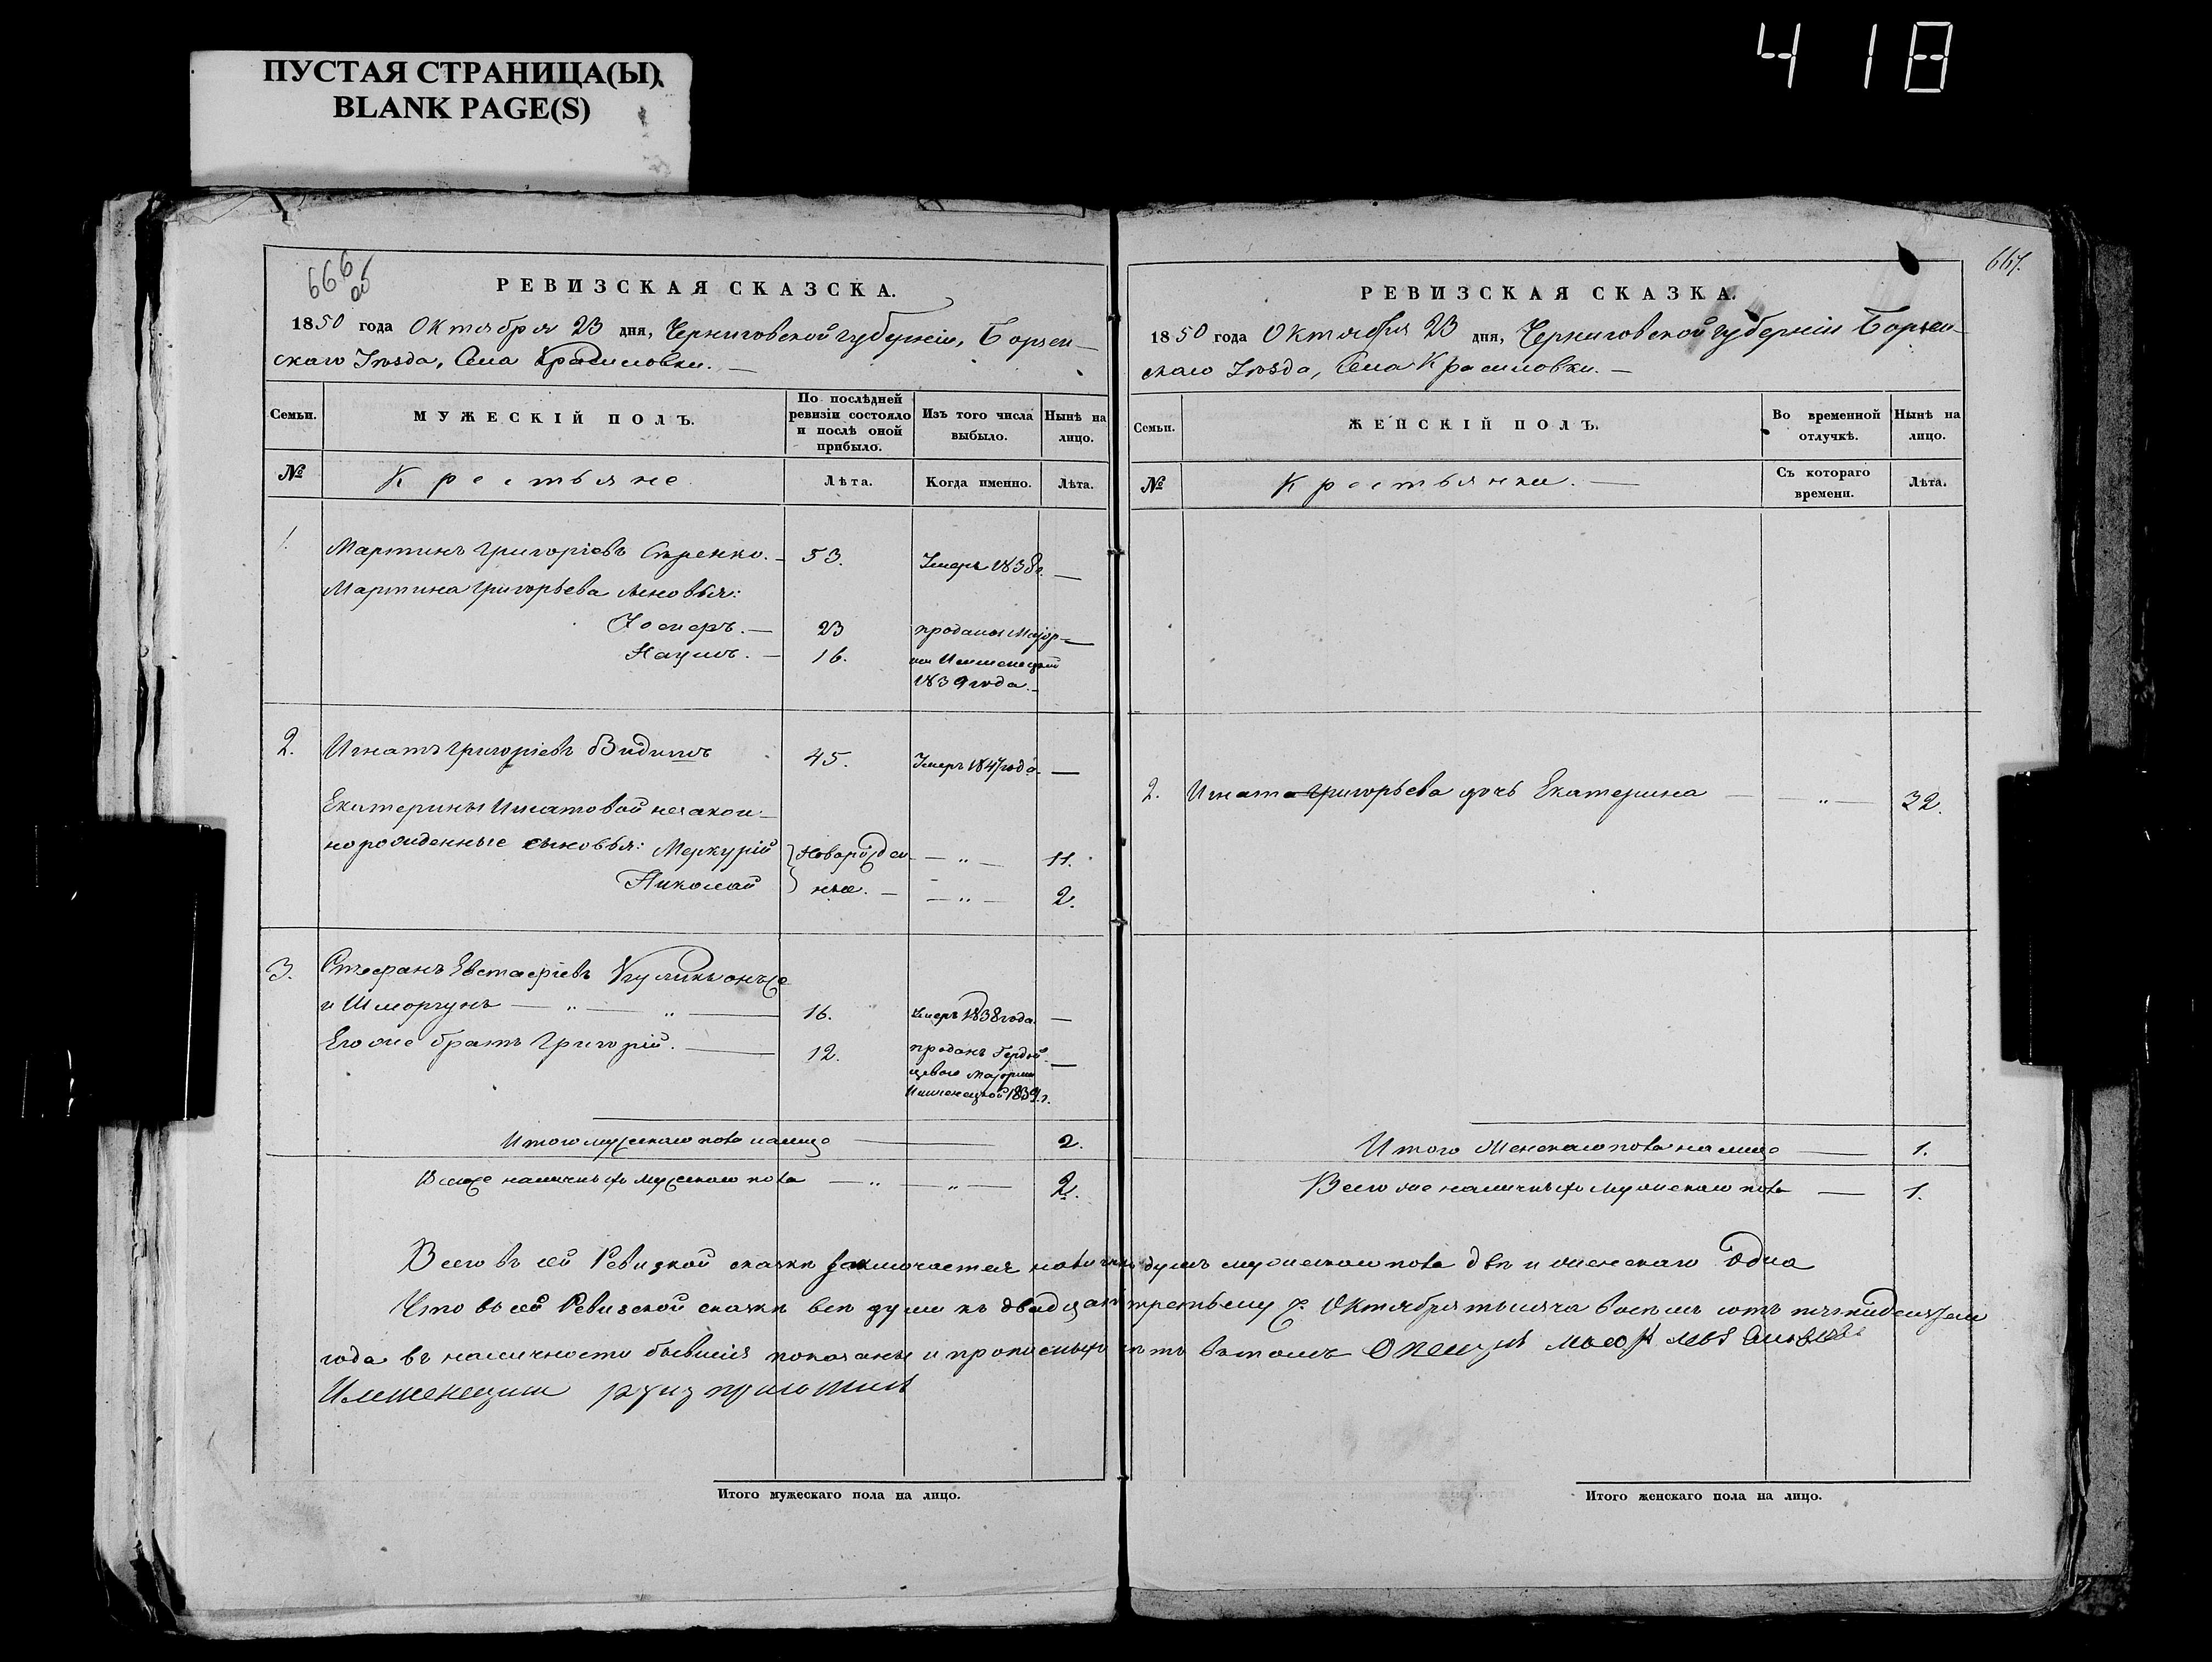 ПУСТАЯ СТРАНИЦА(Ы)
BLANK PAGE(S)
418
666
об
РЕВИЗСКАЯ СКАЗСКА.
1850 года Октября 23 дня, Черниговской губерніи, Борзен-
скаго Уѣзда, Села Красиловки. —
Семьи.
МУЖЕСКІЙ ПОЛЪ.
По послѣдней ревизіи состояло и послѣ оной прибыло.
Изъ того числа выбыло.
Нынѣ на лицо.
№
Крестьяне
Лѣта.
Когда именно.
Лѣта.
1. Мартинъ Григоріевъ 53. Умеръ 1838г. —
Мартина Григорьева сыновья:
23 проданы Маіор-
Наумъ. — 16. ши Имшенецкой
1839 года. —
2. Игнатъ Григоріевъ 45. Умеръ 1847 года. —
Екатерины Игнатовой незакон-
норожденные сыновья: Меркурій Новорожден- — „ — 11.
Николай ные. — — „ — 2.
3. Стефанъ Евстафіевъ Куликъ онъ же
и Шморгунъ — „ — „ — 16. Умеръ 1838 года. —
Его же братъ Григорій. — 12. проданъ —
Маіорши
Имшенецкой 1839 г.
Итого мужескаго пола на лицо — 2.
Всего же наличныхъ мужескаго пола — „ — „ — 2.
667.
РЕВИЗСКАЯ СКАЗКА.
1850 года Октября 23 дня, Черниговской губерніи Борзен-
скаго Уѣзда, Села Красиловки. —
Семьи.
ЖЕНСКІЙ ПОЛЪ.
Во временной отлучкѣ.
Нынѣ на лицо.
№
Крестьянки. —
Съ котораго времени.
Лѣта.
2. Игната Григорьева дочь Екатерина — „ — 32.
Итого Женскаго пола на лицо — 1.
Всего же наличныхъ мужескаго пола — 1.
Всего въ сей Ревизкой сказкѣ заключается наличныхъ душъ мужескаго пола двѣ и женскаго одна
Что въ сей Ревизской сказкѣ всѣ души къ двадцать третьему ч. Октября тысяча восемь сотъ пятидесятаго
года въ наличности бывшія показаны и прописныхъ нѣтъ въ томъ
Имшенецкий руку приложилъ
Итого мужескаго пола на лицо.
Итого женскаго пола на лицо.